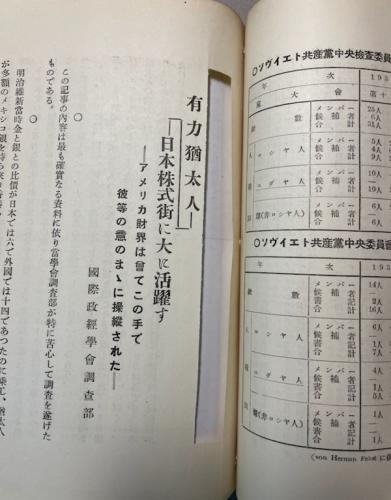 ○ソヴイエト共產黨中央檢查委員
年 次 193
黨 大 會 第十
總 數 メンバー
候補者
合計
ロシヤ人 メンバー
候補者
合計
ユダヤ人 メンバー
候補者
合計
(非ロシヤ人) メンバー 6人
候補者
合計 6人
○ソヴイエト共產黨中央委員會
年 次 193
總 數 メンバー 14人
候補者 2人
合計 16人
ロシヤ人 メンバー 6人
候補者 1人
合計 7人
メンバー
候補者
合計
(非ロシヤ人) メンバー
候補者
合計
(von Herman
有力猶太人
日本株式街に大に活躍す
―アメリカ財界は曾てこの手で
彼等の意のまゝに操縱された―
國際政經學會調查部
この記事の內容は最も確實なる資料に依り當學會調查部が特に苦心して調查を遂げた
ものである。
○
明治維新當時金と銀との比價が日本では六で外國では十四であつたのに乘じ、猶太人
が多額のメキシコ銀を持ち來り